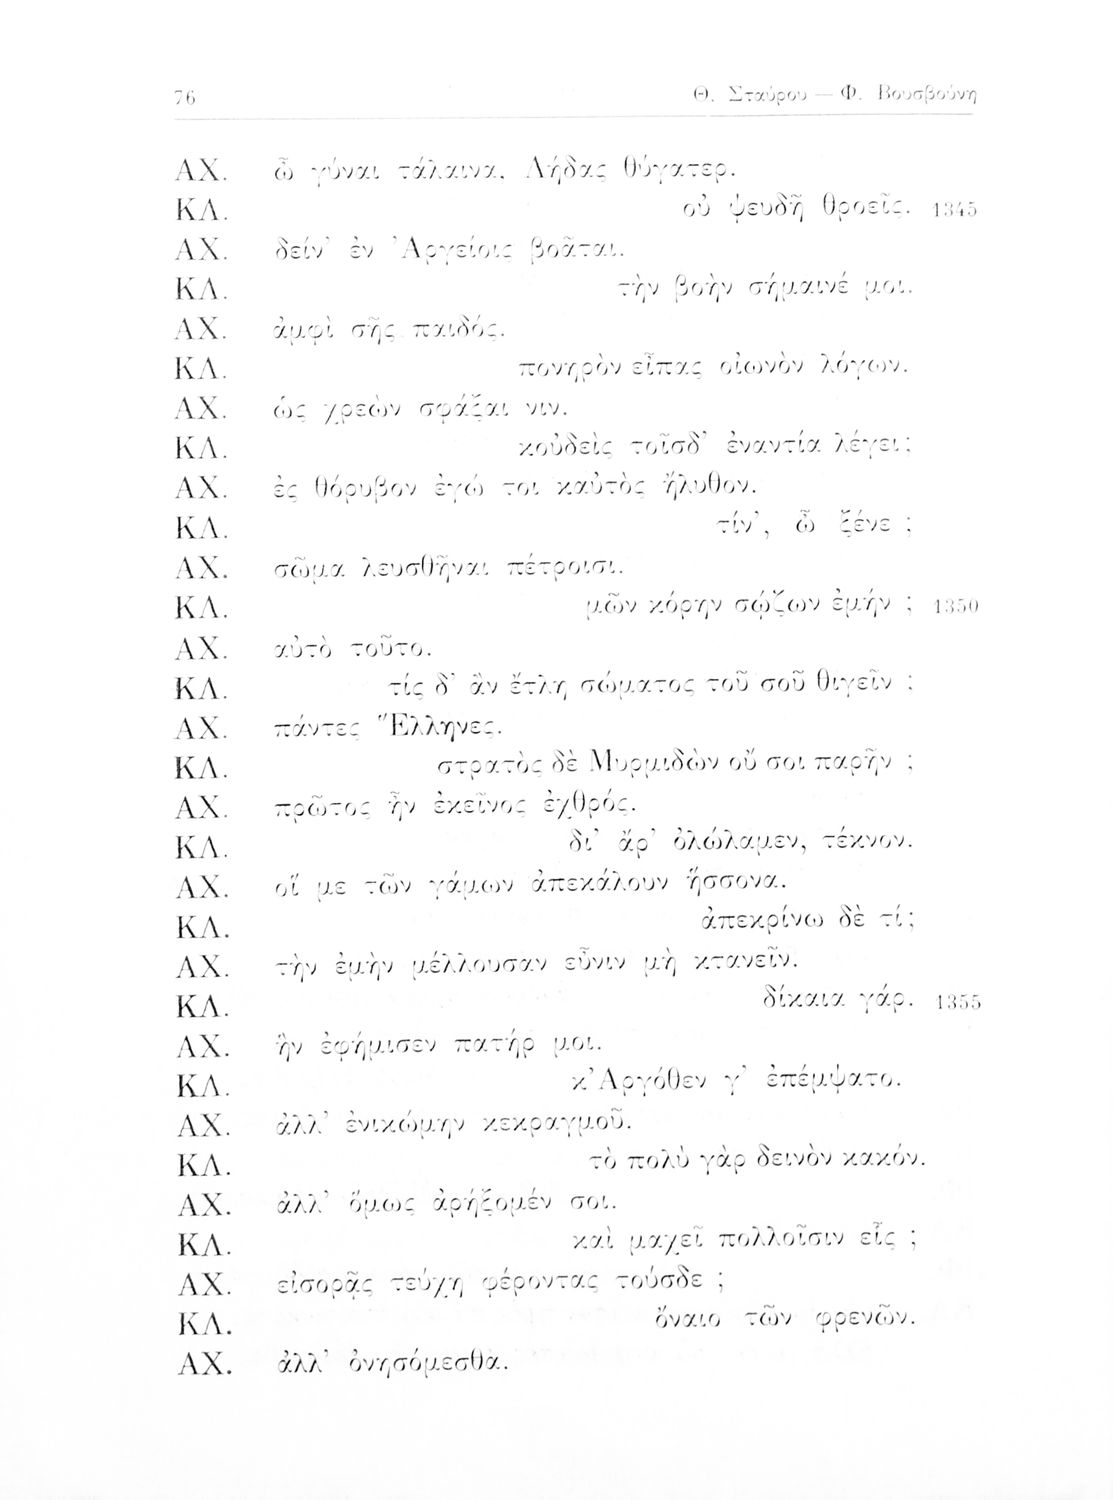 76 Θ. Σταύρου — Φ. Βουσβούνη
ΑΧ. ὦ γύναι τάλαινα, Λήδας θύγατερ.
ΚΛ. οὐ ψευδῆ θροεῖς. 1345
ΑΧ. δείν' ἐν Ἀργείοις βοᾶται.
ΚΛ. τὴν βοὴν σήμαινέ μοι.
ΑΧ. ἀμφὶ σῆς παιδός.
ΚΛ. πονηρὸν εἶπας οἰωνὸν λόγων.
ΑΧ. ὡς χρεὼν σφάξαι νιν.
ΚΛ. κοὐδεὶς τοῖσδ' ἐναντία λέγει;
ΑΧ. ἐς θόρυβον ἐγώ τοι καὐτὸς ἤλυθον.
ΚΛ. τίν', ὦ ξένε ;
ΑΧ. σῶμα λευσθῆναι πέτροισι.
ΚΛ. μῶν κόρην σῴζων ἐμήν ; 1350
ΑΧ. αὐτὸ τοῦτο.
ΚΛ. τίς δ' ἂν ἔτλη σώματος τοῦ σοῦ θιγεῖν ;
ΑΧ. πάντες Ἕλληνες.
ΚΛ. στρατὸς δὲ Μυρμιδὼν οὔ σοι παρῆν ;
ΑΧ. πρῶτος ἦν ἐκεῖνος ἐχθρός.
ΚΛ. δι' ἄρ' ὀλώλαμεν, τέκνον.
ΑΧ. οἵ με τῶν γάμων ἀπεκάλουν ἥσσονα.
ΚΛ. ἀπεκρίνω δὲ τί;
ΑΧ. τὴν ἐμὴν μέλλουσαν εὖνιν μὴ κτανεῖν.
ΚΛ. δίκαια γάρ. 1355
ΑΧ. ἣν ἐφήμισεν πατήρ μοι.
ΚΛ. κ' Ἀργόθεν γ' ἐπέμψατο.
ΑΧ. ἀλλ' ἐνικώμην κεκραγμοῦ.
ΚΛ. τὸ πολὺ γὰρ δεινὸν κακόν.
ΑΧ. ἀλλ' ὅμως ἀρήξομέν σοι.
ΚΛ. καὶ μαχεῖ πολλοῖσιν εἷς ;
ΑΧ. εἰσορᾷς τεύχη φέροντας τούσδε ;
ΚΛ. ὄναιο τῶν φρενῶν.
ΑΧ. ἀλλ' ὀνησόμεσθα.